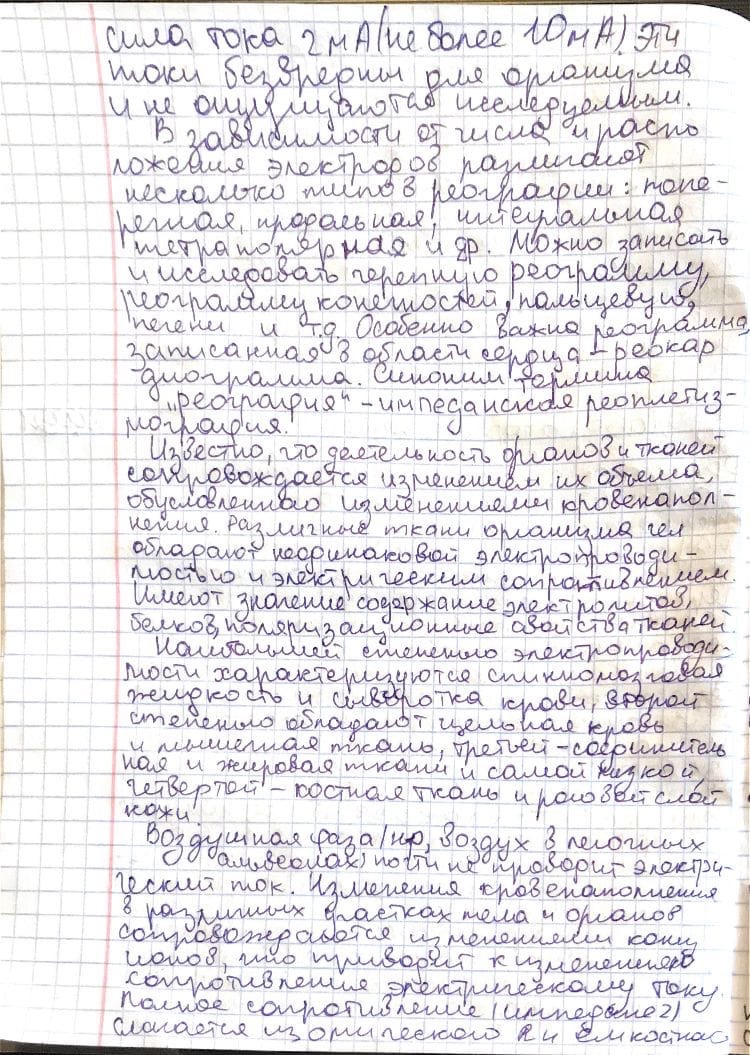 сила тока 2мА (не более 10мА). Эти
токи безвредны для организма
и не ощущаются исследуемым.
В зависимости от числа и распо
ложения электродов различают
несколько типов реографии: попе-
речная, продольная, интегральная
тетраполярная и др. Можно записать
и исследовать черепную реограмму,
реограмму конечностей, пальцевую,
печени и т.д Особенно важна реограмма,
записанная в области сердца - реокар
диограмма. Синоним термина
"реография" - импедансная реоплетиз-
мография.
Известно, что деятельность органов и тканей
сопровождается изменением их объема,
обусловленного изменением кровенапол-
нения. Различные ткани организма чел
обладают неодинаковой электропроводи-
мостью и электрическим сопротивлением.
Имеют значение содержание электролитов,
белков, поляризационные свойства тканей.
Наибольшей степенью электропроводи-
мости характеризуются спинномозговая
жидкость и сыворотка крови, второй
степенью обладают цельная кровь
и мышечная ткань, третьей - соединитель
ная и жировая ткани и самой низкой,
четвертой - костная ткань и роговой слой
кожи
Воздушная фаза (нр, воздух в легочных
альвеолах) почти не проводит электри-
ческий ток. Изменения кровенаполнения
в различных участках тела и органов
сопровождаются изменением конц
ионов, что приводит к изменению
сопротивления электрическому току.
Полное сопротивление (импеданс z)
слагается из омического R и емкостного